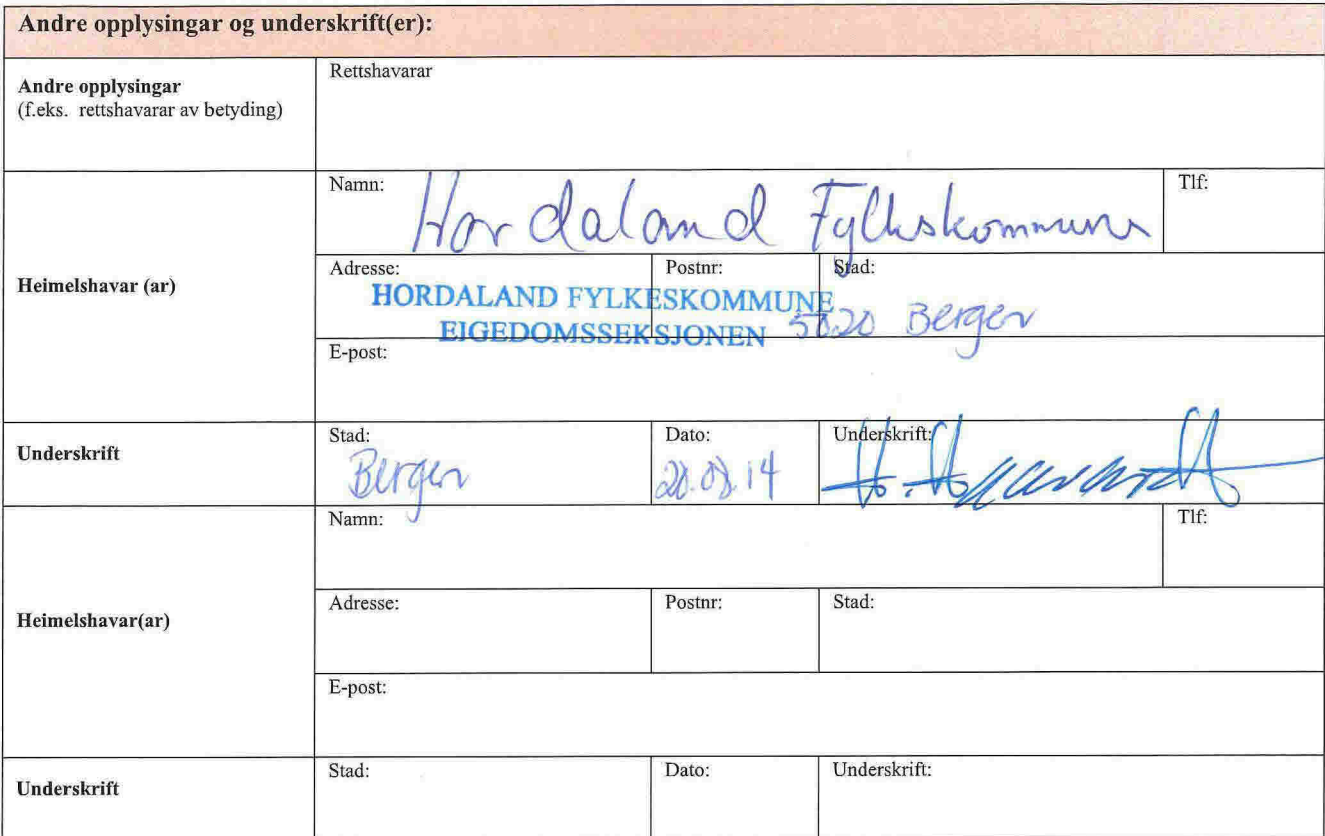 Andre opplysingar og underskrift(er):
Andre opplysingar
(f.eks. rettshavarar av betyding)
Rettshavarar
Heimelshavar (ar)
Namn: Hordaland Fylkeskommune
Tlf:
Adresse:
HORDALAND FYLKESKOMMUNE
EIGEDOMSSEKSJONEN
Postnr: 5020
Stad: Bergen
E-post:
Underskrift
Stad: Bergen
Dato: 20.08.14
Underskrift:
Heimelshavar(ar)
Namn:
Tlf:
Adresse:
Postnr:
Stad:
E-post:
Underskrift
Stad:
Dato:
Underskrift: